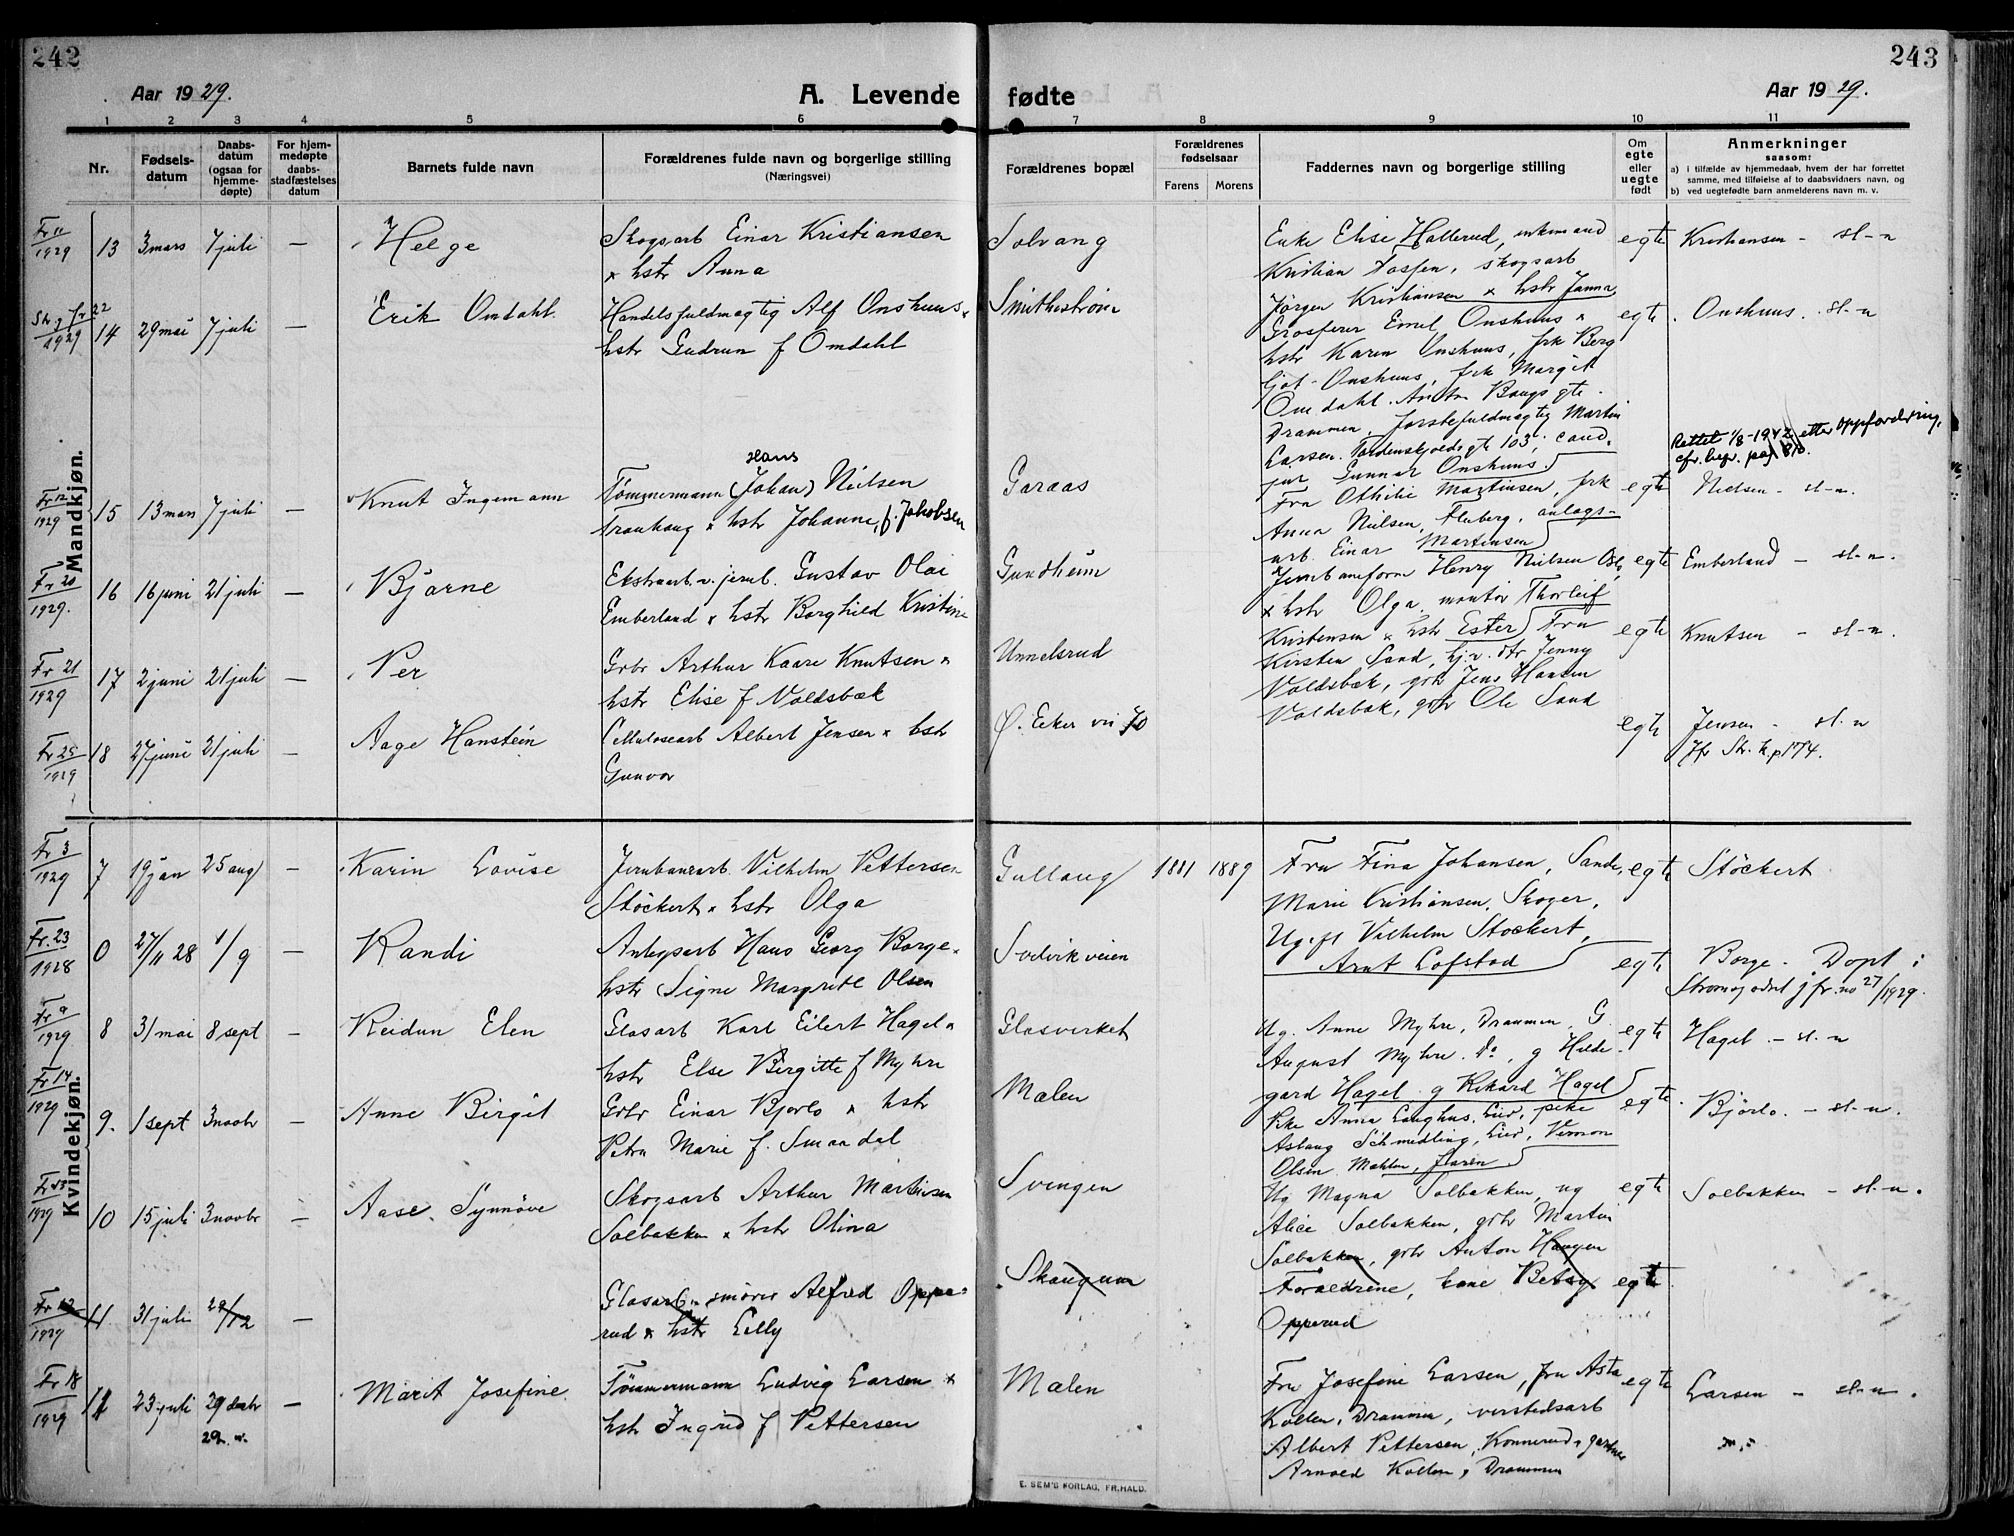 242
Aar 1929.
A. Levende
1 2 3 4 5 6
Nr.
Fødsels-
datum
Daabs-
datum
(ogsaa for
hjemme-
døpte)
For hjem-
medøpte
daabs-
stadfæstelses
datum
Barnets fulde navn
Forældrenes fulde navn og borgerlige stilling
(Næringsvei)
Mandkjøn.
Fr 11
1929 13 3 mars 7 juli — Helge Skogsarb Einar Kristiansen
x hstr Anna
Fr 22
1929 14 29 mai 7 juli — Erik Omdahl Handelsfuldmægtig Alf Onshuus x
hstr Gudrun f Omdahl
Hans
Fr 12
1929 15 13 mars 7 juli — Knut Ingemann Tømmermann (Johan) Nilsen
Tranhaug x hstr Johanne, f. Jakobsen
Fr 20
1929. 16 16 juni 21 juli — Bjarne Ekstraarb. v. jernb. Gustav Olai
Emberland x hstr Borghild Kristine
Fr 21
1929 17 2 juni 21 juli — Per Grbr Arthur Kaare Knutsen x
hstr Elise f Voldsbæk
Fr 25
1929 18 27 juni 21 juli — Aage Hanstein Cellulosearb Albert Jensen x hstr
Gunvor
Kvindekjøn.
Fr 3
1929 7 19 jan 25 aug — Karin Lovise Jernbanearb. Vilhelm Pettersen
Støckert x hstr Olga
Fr. 23
1928 0 27/11 28 1/9 — Randi Anlegsarb Hans Georg Borge x
hstr Signe Margrete Olsen
Fr 9
1929 8 31 mai 8 sept — Reidun Elen Glasarb Karl Eilert Hagel x
hstr Else Birgitte f Myhre
Fr 14
1929 9. 1 sept 3 novbr — Anne Birgit Grbr Einar Bjørlo x hstr
Petra Marie f. Smaadal
Fr 13
1929 10 15 juli 3 novbr — Aase Synnøve Skogsarb Arthur Martinsen
Solbakken x hstr Olina
Fr 12
1929 11 31 juli 29/12 — Glasarb. smører Alfred Oppe-
rud x hstr Lilly
Fr 18
1929 11 23 juli 29 decbr — Marit Josefine Tømmermann Ludvig Larsen x
hstr Ingrid f Pettersen
243
fødte
Aar 1929.
7 8 9 10 11
Forældrenes bopæl
Forældrenes
fødselsaar
Farens Morens
Faddernes navn og borgerlige stilling
Om
egte
eller
uegte
født
Anmerkninger
saasom:
a) i tilfælde av hjemmedaab, hvem der har forrettet
samme, med tilføielse af to daabsvidners navn, og
b) ved uegtefødte barn anmelderens navn m. v.
Solvang Enke Elise Hallerud, enkemand egte Kristiansen – st-n
Kristian Tossen, skogsarb
Jørgen Kristiansen x hstr Janna
Smithestrøm Grosserer Emil Onshuus x egte. Onshuus. st-n
hstr Karen Onshuus, frk Berg
ljot Onshuus, frk Margit
Omdahl. Anton Baugs gte.
Drammen, forstefuldmægtig Martin
Larsen. Tordenskjoldsgt 103, cand.
jur Gunnar Onshuus
Rettet 1/8-1942 etter oppfordring,
cfr. bfr. pag 810.
Garaas Fru Othilie Martinsen, frk egte Nielsen – st-n.
Anna Nilsen, Fluberg, anlags-
arb. Einar Martinsen
Gundheim Jernbaneform Henry Nielsen Oslo egte Emberland – st-n.
x hstr Olga, montør Thorleif
Kristensen x hstr Ester
Unnelsrud Fru egte Knutsen – st-n.
Kirsten Sand, hj.v. dtr Jenny
Voldsbæk, gbr Jens Hansen
Voldsbæk, gbr Ole Sand
Ø. Eeker vei 70 egte Jensen – st-n
Jfr Str. k. p 174.
Gullaug 1881 1889 Fru Fina Johansen, Sande, egte Støckert
Marie Kristiansen, Skoger,
Ug.ft Vilhelm Støckert,
Arnt Lofstad
Svelvikveien egte Borge – Døpt i
Strømsgodset jfr. no 27/1929.
Glasverket Ug. Anne Myhre, Drammen, G egte Hagel – st-n
August Myhre. Do, g Hilde-
gard Hagel g Rikard Hagel
Mælen Pike Anna Langhus, Lier, pike egte. Bjørlo. – st-n.
Aslaug Schmedling, Lier, Vernon
Olsen Mæhlen,
Svingen Ug Magna Solbakken, ug egte Solbakken – st-n.
Alice Solbakken, gbr Martin
Solbakken, gbr Anton Haugen
Skaugum Forældrene, kone Betsy egte
Opperud
Mælen Fru Josefine Larsen, fru Asta egte Larsen – st-n.
Kollen, Drammen, verkstedsarb
Albert Pettersen, Konnerud, gartner
Arnold Kollen, Drammen
E. SEM'S FORLAG, FR.HALD.